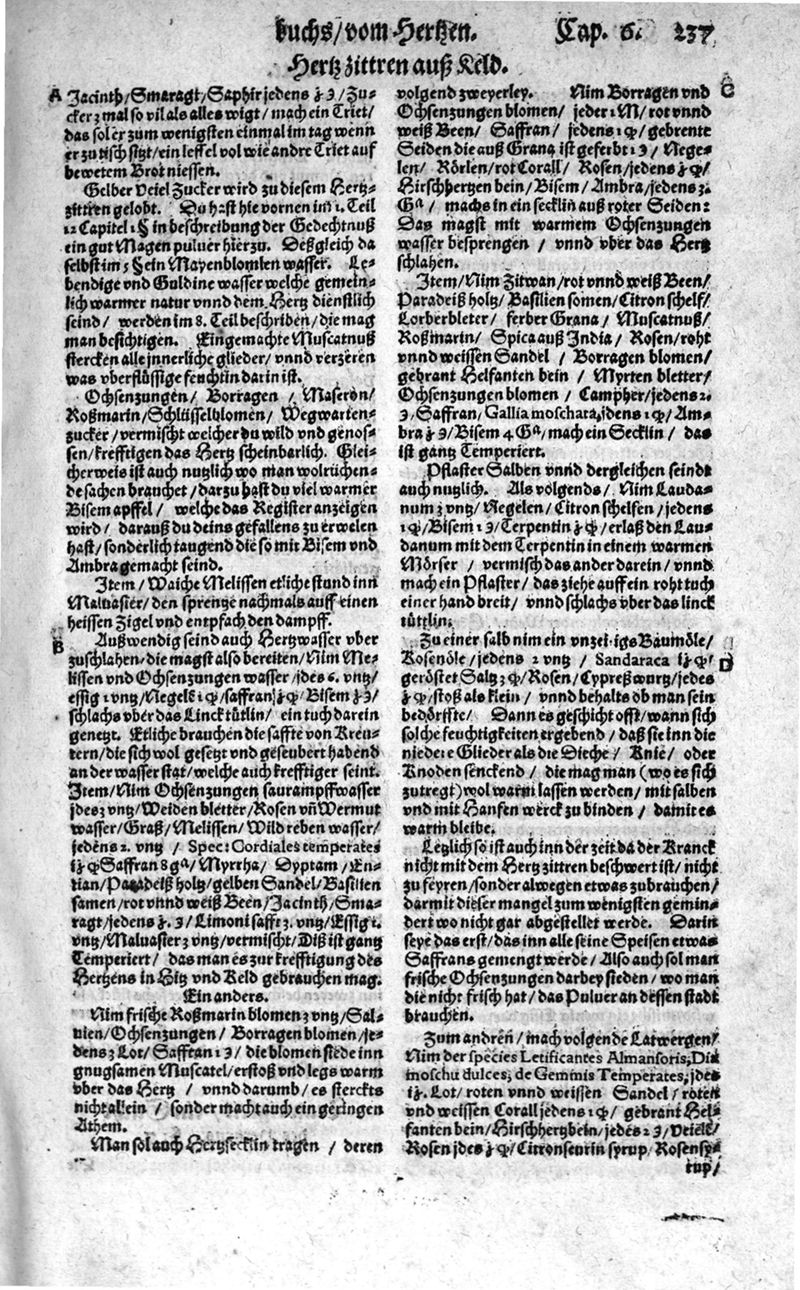 kuchs/vom Hertzen. Cap. 6. 237
Hertz zittren auß Keld.
A Jacinth/Smaragt/Saphir jedens ʒ ℈/Zu-
cker 2 mal so vil als alles wigt/mach ein Triet/
das sol er zum wenigsten einmal im tag wenn
er zu tisch sitzt/ein leffel vol wie andre Triet auf
bewetem Brot niessen.
Gelber Veiel Zucker wird zu diesem Hertz-
zittren gelobt. Du hast hie vornen im 1. Teil
12 Capitel 1 § in beschreibung der Gedechtnuß
ein gut Magen puluer hierzu. Deßgleich da
selbst im 5 § ein Mayenblomlen wasser. Le-
bendige vnd Guldine wasser welche gemein-
lich warmer natur vnnd dem Hertz dienstlich
seind/ werden im 8. Teil beschriben/die mag
man besichtigen. Eingemachte Muscatnuß
stercken alle jnnerliche glieder/vnnd verzeren
was vberflüssige feuchtin darin ist.
Ochsenzungen/ Borragen / Maseron/
Roßmarin/Schlüsselblomen/ Wegwarten-
zucker/vermischt welcher du wild vnd genos-
sen/krefftigen das Hertz scheinbarlich. Glei-
cherweis ist auch nutzlich wo man wolrüchen-
de sachen brauchet/darzu hast du viel warmer
Bisem apffel / welche das Register anzeigen
wird/ darauß du deins gefallens zu erwelen
hast/sonderlich taugend die so mit Bisem vnd
Ambra gemacht seind.
Item/Waiche Melissen etliche stund inn
Maluasier/den sprenge nachmals auff einen
heissen Zigel vnd entpfach den dampff.
B Außwendig seind auch Hertzwasser vber
zuschlahen/die magst also bereiten/Nim Me-
lissen vnd Ochsenzungen wasser/jdes 6. vntz/
essig 1 vntz/Negele 1 quintlein/saffran/Bisem/
schlachs vber das Linck tütlin/ ein tuch darein
genetzt. Etliche brauchen die saffte von Kreu-
tern/die sich wol gesetzt vnd geseubert habend
an der wasser stat/welche auch krefftiger seint.
Item/Nim Ochsenzungen saurampffwasser
jdes 2 vntz/Weiden bletter/Rosen vñ Wermut
wasser/Graß/Melissen/Wild reben wasser/
jedens 2. vntz / Spec: Cordiales temperates
Saffran 8 gᵃ/Myrrha/ Dyptam/En-
tian/Paradeiß holtz/gelben Sandel/Basilien
samen/rot vnnd weiß Been/Jacinth/Sma-
ragt/jedens/Limoni safft 2. vntz/Essig 1.
vntz/Maluasier 2 vntz/vermischt/Diß ist gantz
Temperiert/ das man es zur krefftigung des
Hertzens in Hitz vnd Keld gebrauchen mag.
Ein anders.
Nim frische Roßmarin blomen 2 vntz/Sal-
uien/Ochsenzungen/ Borragen blomen/je-
dens 2 Lot/Saffran 1 ℈/ die blomen stede inn
gnugsamen Muscatel/erstoß vnd legs warm
vber das Hertz / vnnd darumb/es sterckts
nicht allein / sonder macht auch ein geringen
Athem.
Man sol auch Hertzsecklin tragen / deren
volgend zweyerley. Nim Borragen vnd C
Ochsenzungen blomen/ jeder 1 M/rot vnnd
weiß Been/ Saffran/ jedens/ gebrente
Seiden die auß Grana ist geferbt 1 ℈/Nege-
len/ Rörlen/rot Corall/ Rosen/jedens/
Hirschhertzen bein/Bisem/Ambra/jedens 2.
Gᵃ/ machs in ein secklin auß roter Seiden:
Das magst mit warmem Ochsenzungen
wasser besprengen / vnnd vber das Hertz
schlahen.
Item/Nim Zitwan/rot vnnd weiß Been/
Paradeiß holtz/Basilien somen/Citron schelf/
Lorberbleter/ ferber Grana/ Muscatnuß/
Roßmarin/ Spica auß India/ Rosen/roht
vnnd weissen Sandel / Borragen blomen/
gebrant Helfanten bein / Myrten bletter/
Ochsenzungen blomen / Campher/jedens 2.
℈/Saffran/Gallia moschata, jdens/Am-
bra/Bisem 4 Gᵃ/mach ein Secklin / das
ist gantz Temperiert.
Pflaster Salben vnnd dergleichen seindt
auch nutzlich. Als volgends/ Nim Lauda-
num 2 vntz/Negelen/Citron schelfen/jedens
Bisem 1 ℈/Terpentin/erlaß den Lau-
danum mit dem Terpentin in einem warmen
Mörser / vermisch das ander darein/vnnd
mach ein Pflaster/das ziehe auff ein roht tuch
einer hand breit/ vnnd schlachs vber das linck
tüttlin.
Zu einer salb nim ein vnzeitigs Baumöle/
Rosenöle/jedens 2 vntz / Sandaraca D
geröstet Saltz/Rosen/Cypreßwurtz/jedes
stoß als klein/ vnnd behalts ob man sein
bedörffte/ Dann es geschicht offt/wann sich
solche feuchtigkeiten ergebend/daß sie inn die
niedere Glieder als die Dieche/ Knie/ oder
Knoden senckend / die mag man (wo es sich
zutregt) wol warm lassen werden/mit salben
vnd mit Hanfen werck zu binden / damit es
warm bleibe.
Letzlich so ist auch inn der zeit da der Kranck
nicht mit dem Hertz zittren beschwert ist/nicht
zu feyren/sonder alwegen etwas zubrauchen/
darmit dieser mangel zum wenigsten gemin-
dert wo nicht gar abgestellet werde. Darin
seye das erst/das inn alle seine Speisen etwas
Saffrans gemengt werde/Also auch sol man
frische Ochsenzungen darbey sieden/wo man
die nicht frisch hat/das Puluer an dessen stadt
brauchen.
Zum andren/mach volgende Latwergen/
Nim der species Letificantes Almansoris, Dia
moschu dulces, de Gemmis Temperates, jdes
Lot/roten vnnd weissen Sandel/roten
vnd weissen Corall jedens/ gebrant Hel-
fanten bein/Hirschhertzbein/jedes 2 ℈/Veiel/
Rosen jdes/Citronseurin syrup/Rosensy-
rup/